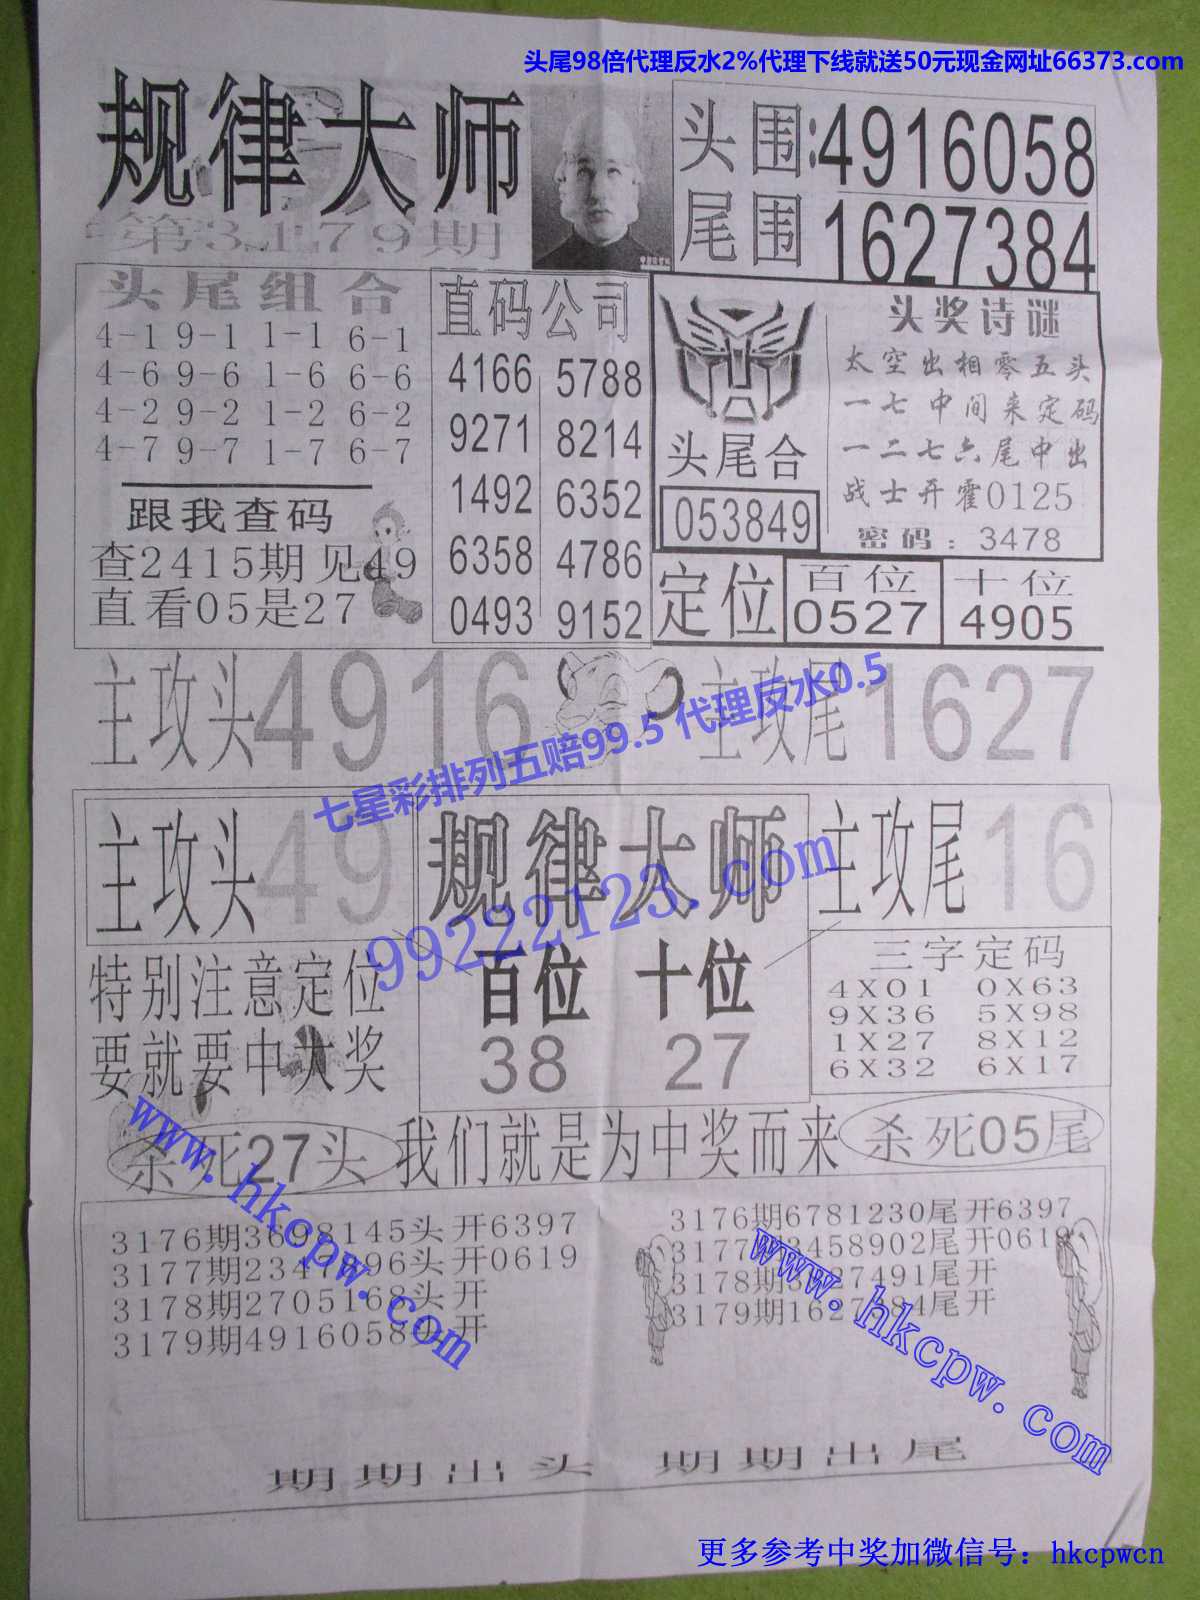 头尾98倍代理反水2%代理下线就送50元现金网址66373.com
规律大师
第3179期
头围:4916058
尾围 1627384
头尾组合
4-1 9-1 1-1 6-1
4-6 9-6 1-6 6-6
4-2 9-2 1-2 6-2
4-7 9-7 1-7 6-7
跟我查码
查2415期见49
直看05是27
直码公司
4166 5788
9271 8214
1492 6352
6358 4786
0493 9152
头尾合
053849
头奖诗谜
太空出相零五头
一七中间来定码
一二七六尾中出
战士开霍0125
密码：3478
定位
百位
0527
十位
4905
主攻头4916
主攻尾1627
七星彩排列五赔99.5 代理反水0.5
主攻头49
规律大师
主攻尾16
99222123.com
特别注意定位
要就要中大奖
百位 十位
38 27
三字定码
4X01 0X63
9X36 5X98
1X27 8X12
6X32 6X17
杀死27头
我们就是为中奖而来
杀死05尾
www.hkcpw.com
3176期3698145头开6397
3177期2347896头开0619
3178期2705168头开
3179期4916058头开
3176期6781230尾开6397
3177期3458902尾开0619
3178期 27491尾开
3179期1627384尾开
www.hkcpw.com
期期出头 期期出尾
更多参考中奖加微信号：hkcpwcn